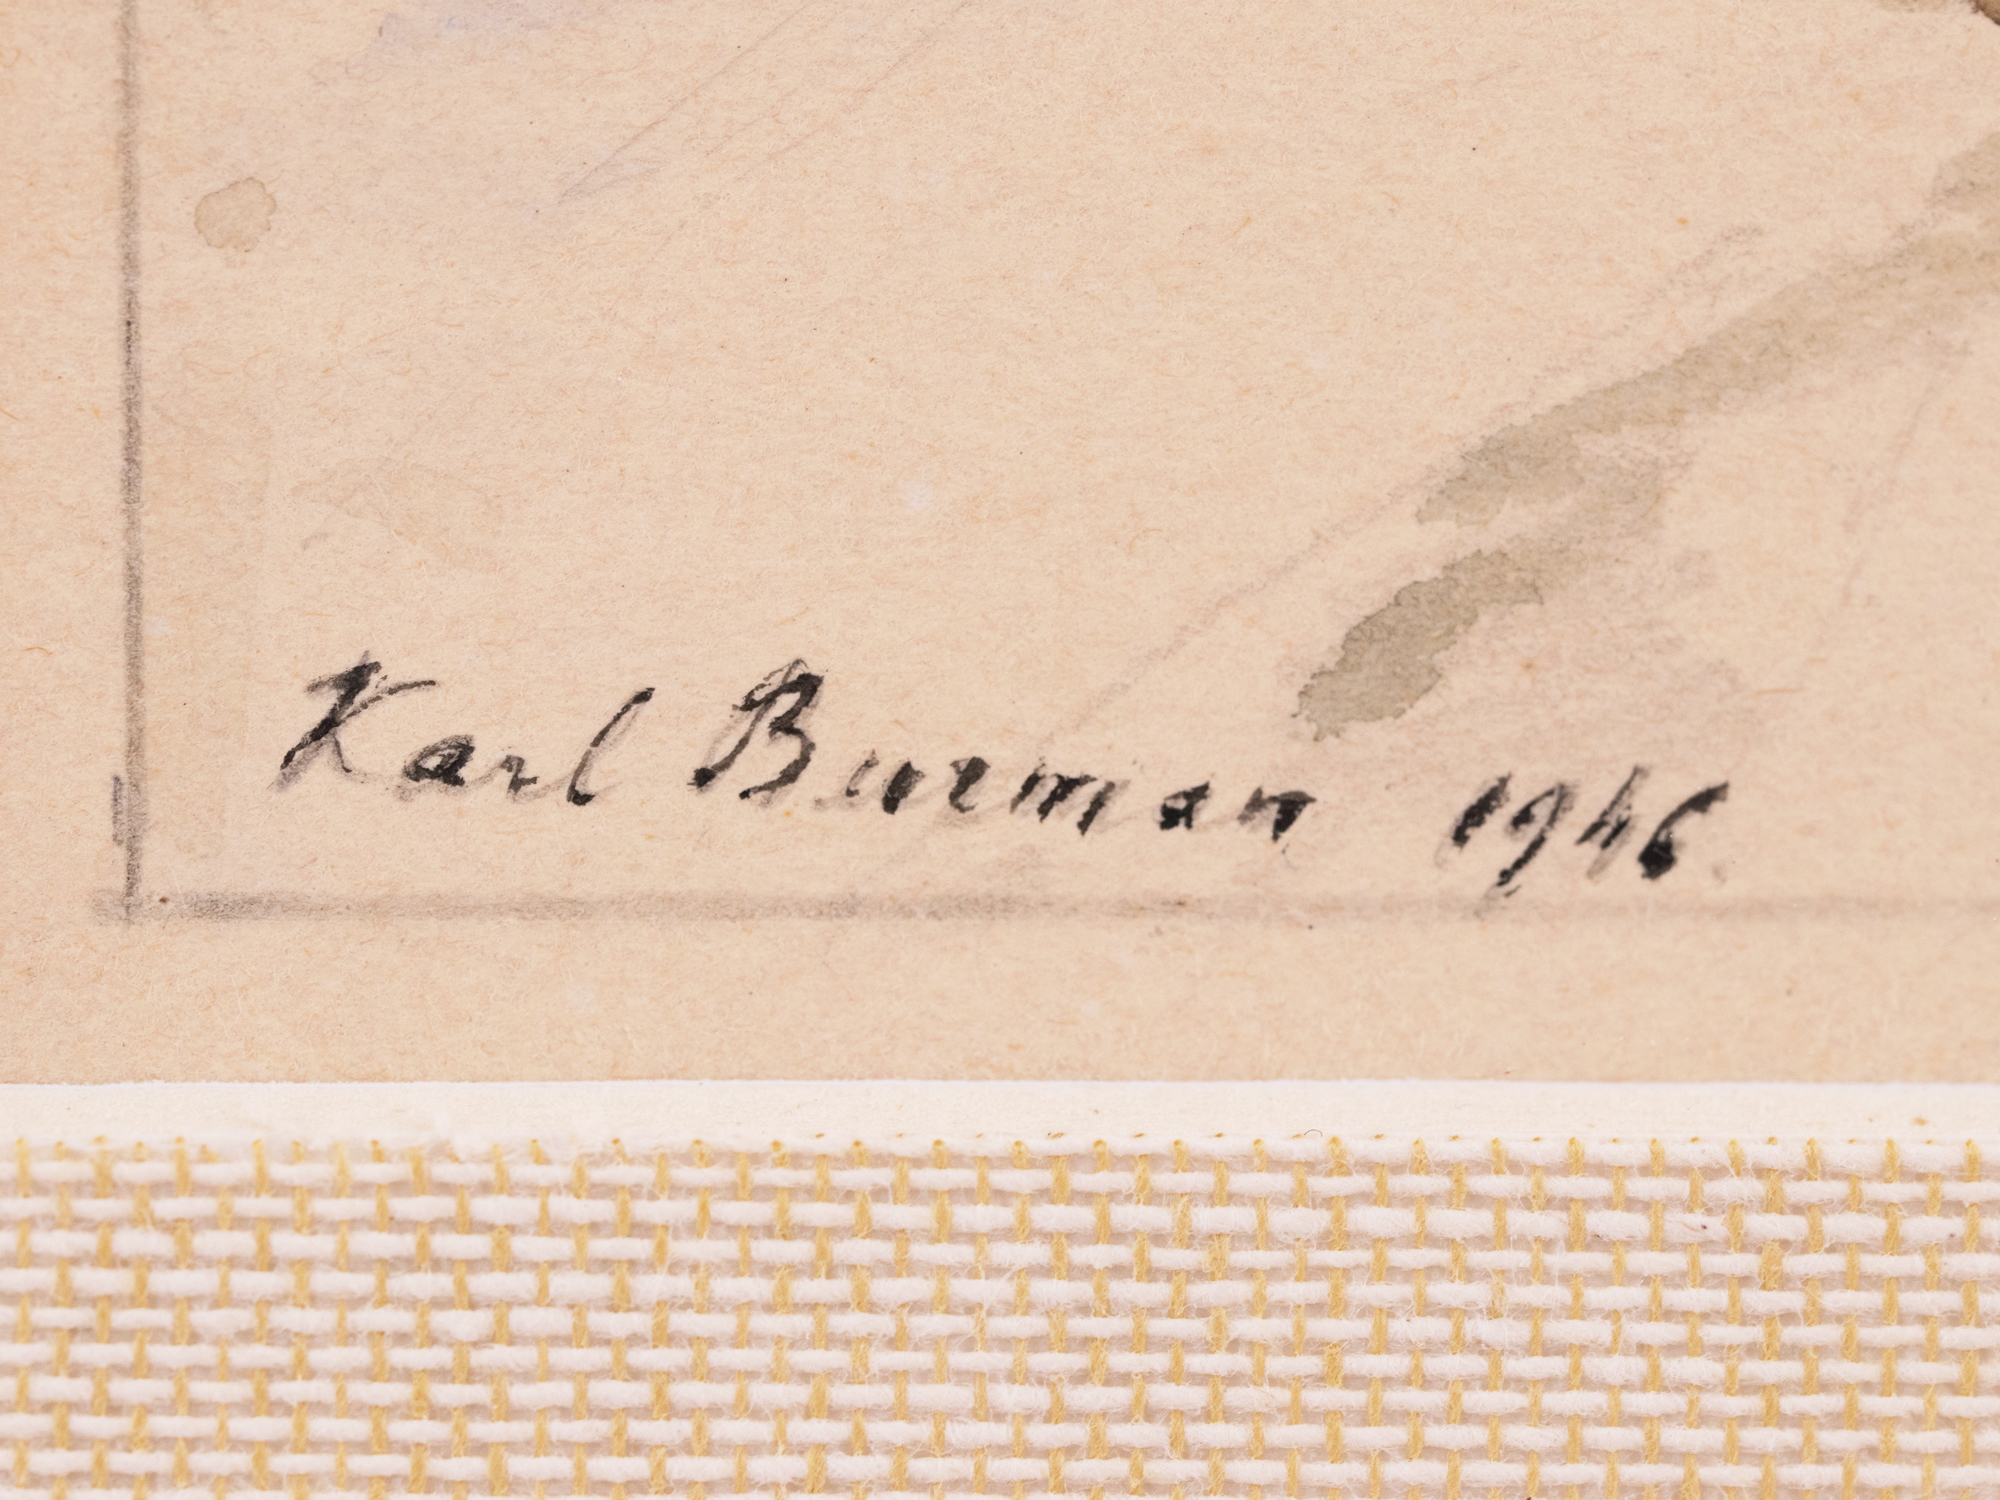 Karl Burman 1946